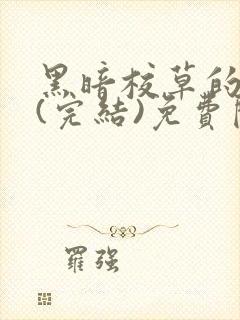 黑暗校草的
(完結)免費
羅強